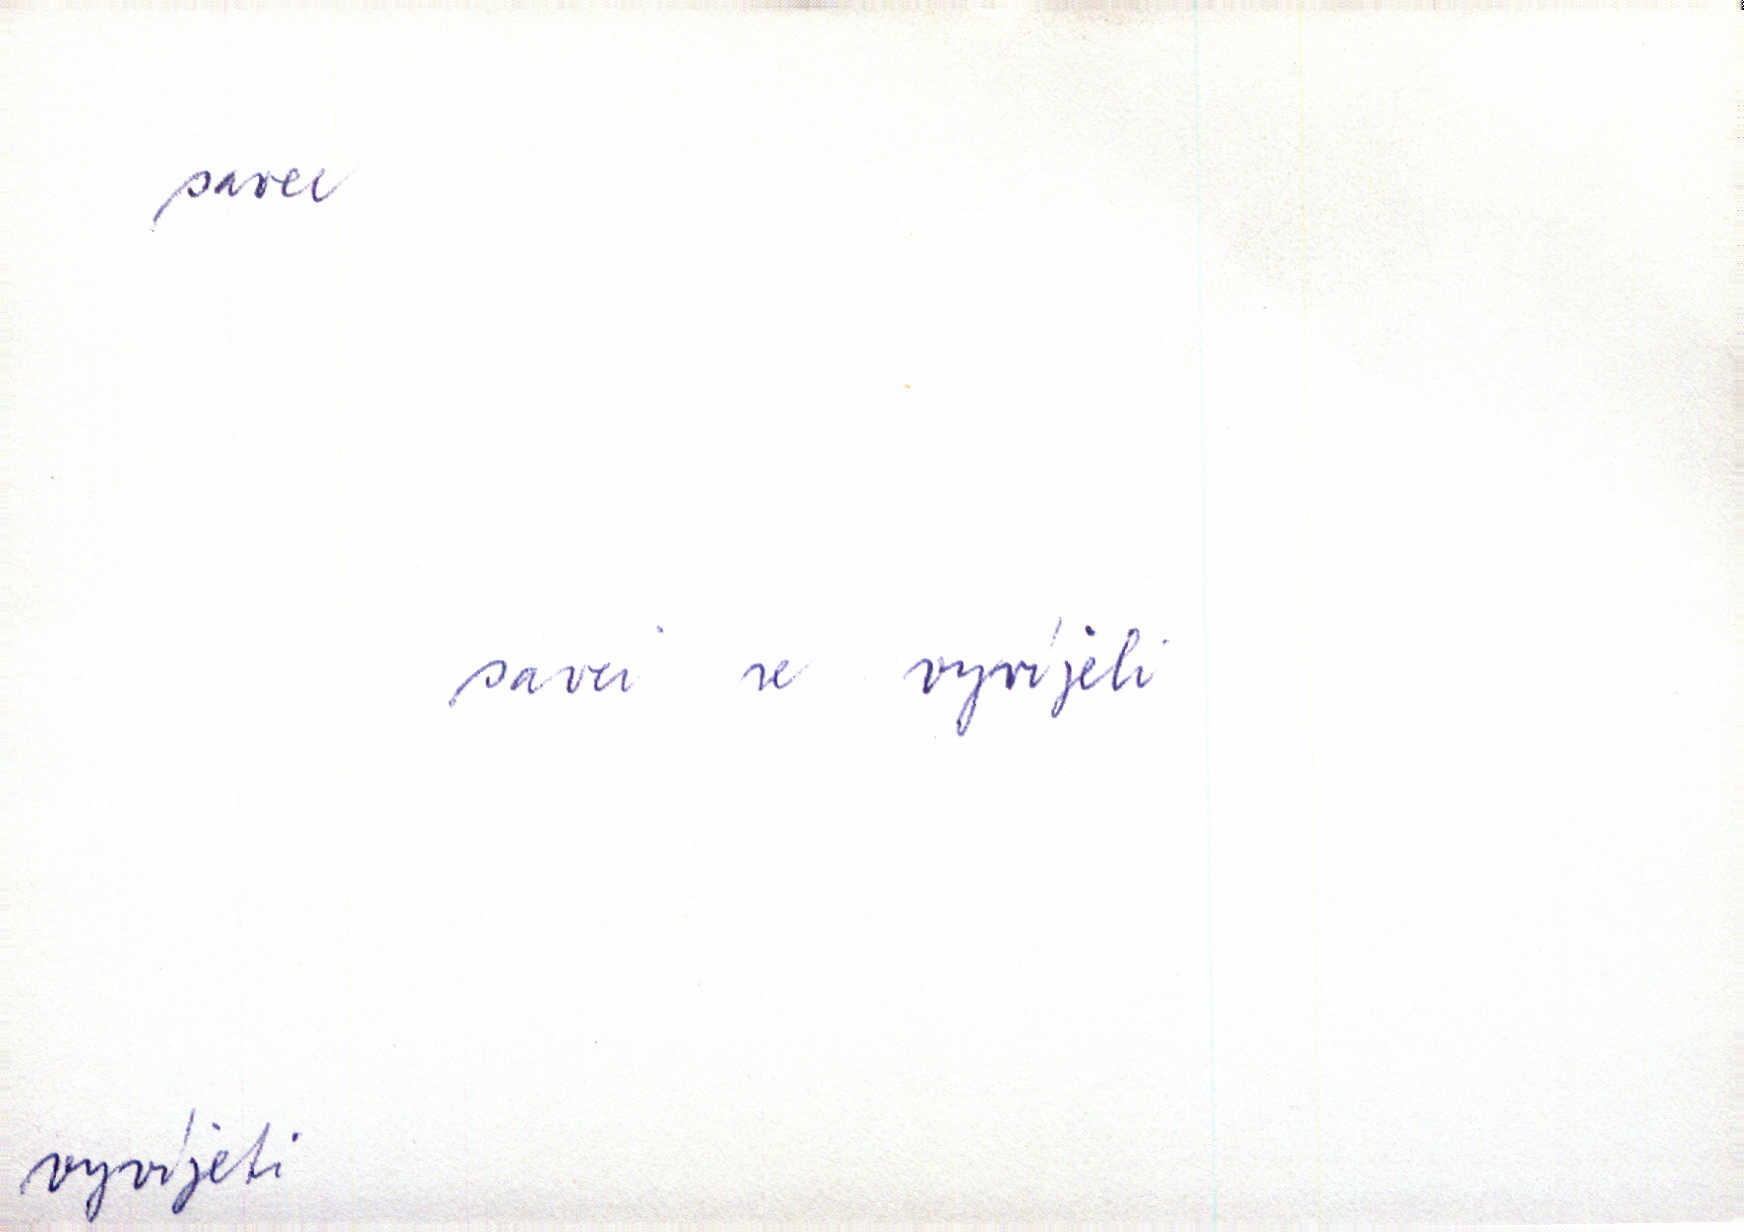 savec
savci se vyvíjeli
vyvíjeti